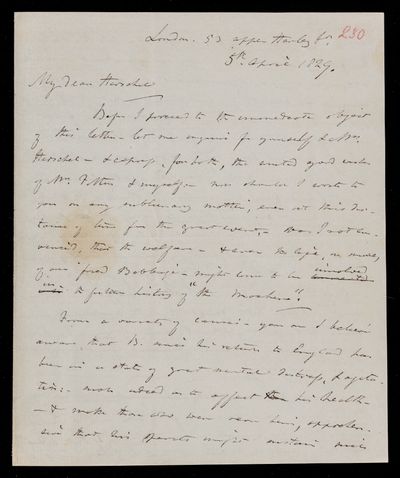 London. 53 upper Harley St. 230
5th April 1829.
My dear Herschel
Before I proceed to the immediate object
of this letter - let me enquire for yourself & Mrs.
Herschel - & express, for both, the united good wishes
of Mrs. & myself - nor should I write to
you on any sublunary matter, even at this dis-
tance of time from the great event, - was I not con-
vinced, that the welfare - & even the life, in measure,
of our friend Babbage - might come to be involved
in the future history of "the machine".
From a variety of causes - you are I believe
aware, that B. since his return to England has
been in a state of great mental distress, & agita-
tion: - more indeed as to affect his health -
- & make those who were near him, apprehen-
sive that his spirits might sustain